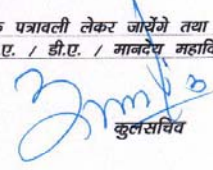 पत्रावली लेकर जायेंगे तथा
ए. / डी.ए. / मानदेय
कुलसचिव